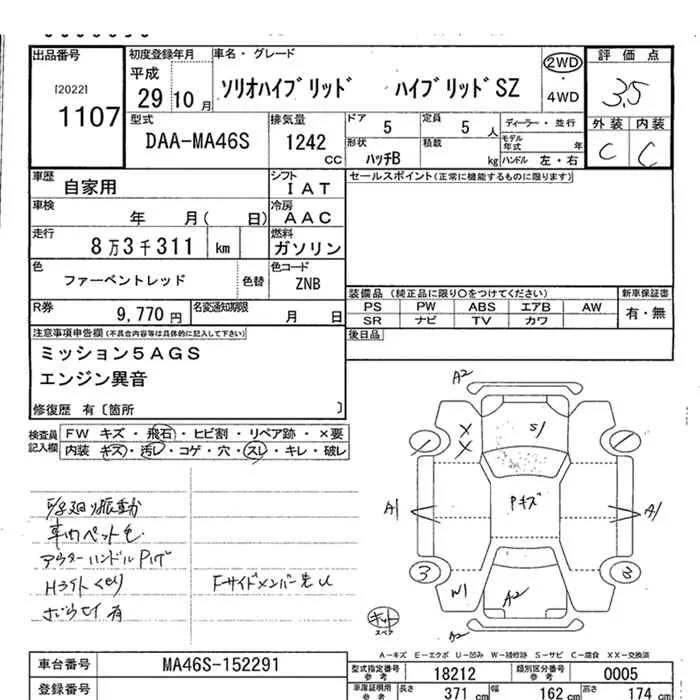 出品番号
［2022］
1107
初度登録年月
平成
29 10 月
車名・グレード
ソリオハイブリッド ハイブリッドSZ
2WD
4WD
評価点
3.5
外装 内装
C C
型式
DAA-MA46S
排気量
1242 CC
ドア 5
定員 5 人
ディーラー・並行
形状
ハッチB
積載 kg
モデル年式 年
ハンドル 左・右
車歴 自家用
シフト
IAT
車検 年 月( 日)
冷房
AAC
走行
8万3千311 km
燃料
ガソリン
色
ファーベントレッド
色替
色コード
ZNB
R券
9,770 円
名変通知期限
月 日
セールスポイント(正常に機能するものに限ります)
装備品 (純正品に限り○をつけてください)
PS PW ABS エアB AW
SR ナビ TV カワ
新車保証書
有・無
後日品
注意事項申告欄(不具合内容等は具体的に記入して下さい)
ミッション5AGS
エンジン異音
修復歴 有〔箇所 〕
検査員記入欄
FW キズ・飛石・ヒビ割・リペア跡・×要
内装 キズ・汚レ・コゲ・穴・スレ・キレ・破レ
アウターハンドルPハゲ
Hライトくもり
有
A2
S/
Pキズ
A1
A1
3
3
W1
A2
A2
キット
スペア
A－キズ E－エクボ U－凹み W－補修跡 S－サビ C－腐食 XX－交換済
車台番号
MA46S-152291
登録番号
型式指定番号 参考
18212
類別区分番号 参考
0005
車庫証明用 参考
長さ 371 cm
幅 162 cm
高さ 174 cm